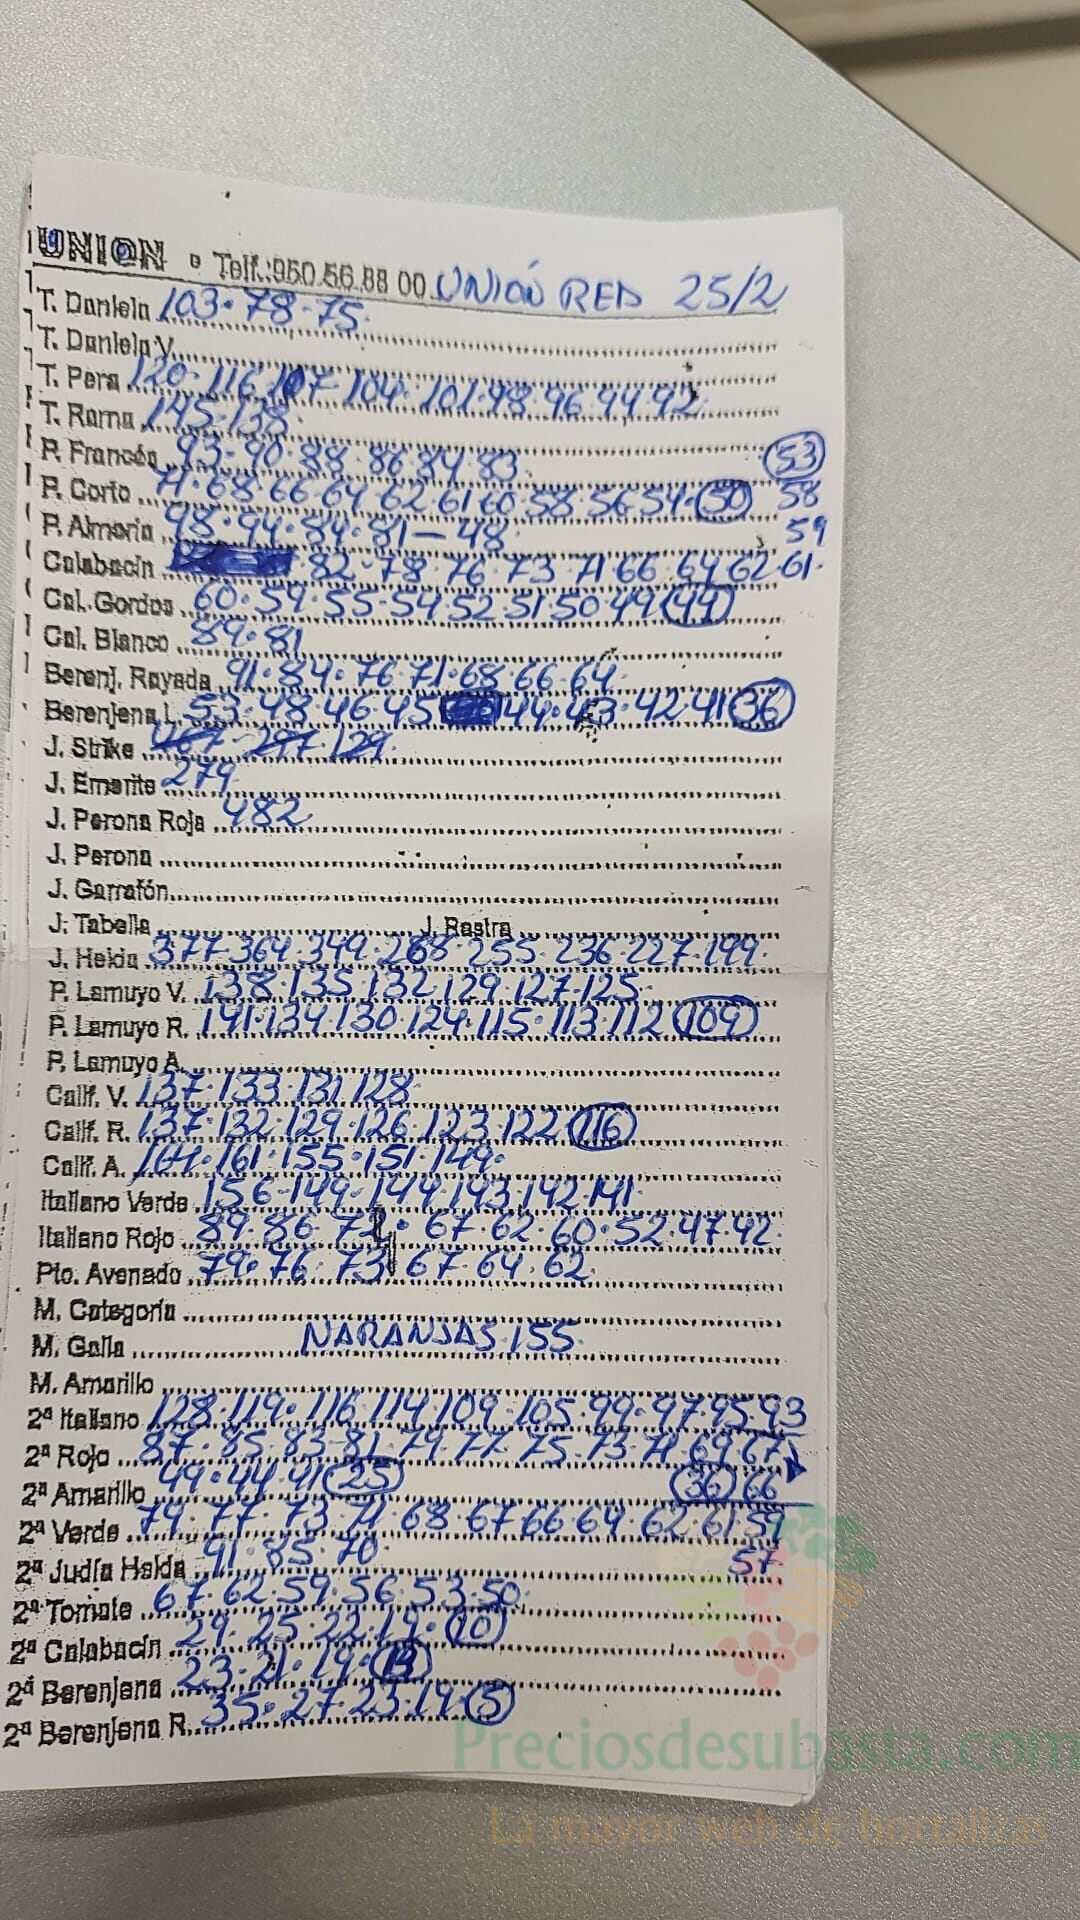 UNION Telf.:950.56.88 00 UNIÓN RED 25/2
T. Daniela 103·78-75
T. Daniela V.
T. Pera 120·116·107·104·101·98·96·94·92
T. Rama 145·138
P. Francés 93·90·88·86·84·83 (53)
P. Corto 71·68·66·64·62·61·60·58·56·54·(50) 58
P. Almería 98·94·84·81—48 59
Calabacín 82·78·76·73·71·66·64·62·61
Cal. Gordos 60·59·55·54·52·51·50·49·(44)
Cal. Blanco 89·81
Berenj. Rayada 91·84·76·71·68·66·64
Berenjena L. 53·48·46·45 44·43·42·41 (36)
J. Strike 129
J. Emerite 279
J. Perona Roja 482
J. Perona
J. Garrafón
J. Tabella J. Rastra
J. Helda 377·364·349·268·255·236·227·199
P. Lamuyo V. 138·135·132·129·127·125
P. Lamuyo R. 141·134·130·124·115·113·112 (109)
P. Lamuyo A.
Calif. V. 137·133·131·128
Calif. R. 137·132·129·126·123·122 (116)
Calif. A. 164·161·155·151·149
Italiano Verde 156·149·144·143·142·141
Italiano Rojo 89·86·72·67·62·60·52·47·42
Pto. Avenado 79·76·73·67·64·62
M. Categoría
M. Galia NARANJAS 155
M. Amarillo
2ª Italiano 128·119·116·114·109·105·99·97·95·93
2ª Rojo 87·85·83·81·79·77·75·73·71·69·67
2ª Amarillo 49·44·41 (25) (36) 66
2ª Verde 79·77·73·71·68·67·66·64·62·61·59
2ª Judía Helda 91·85·70 57
2ª Tomate 67·62·59·56·53·50
2ª Calabacín 29·25·22·19·(10)
2ª Berenjena 23·21·19
2ª Berenjena R. 35·27·23·19·(5)
Preciosdesubasta.com
La mayor web de hortalizas